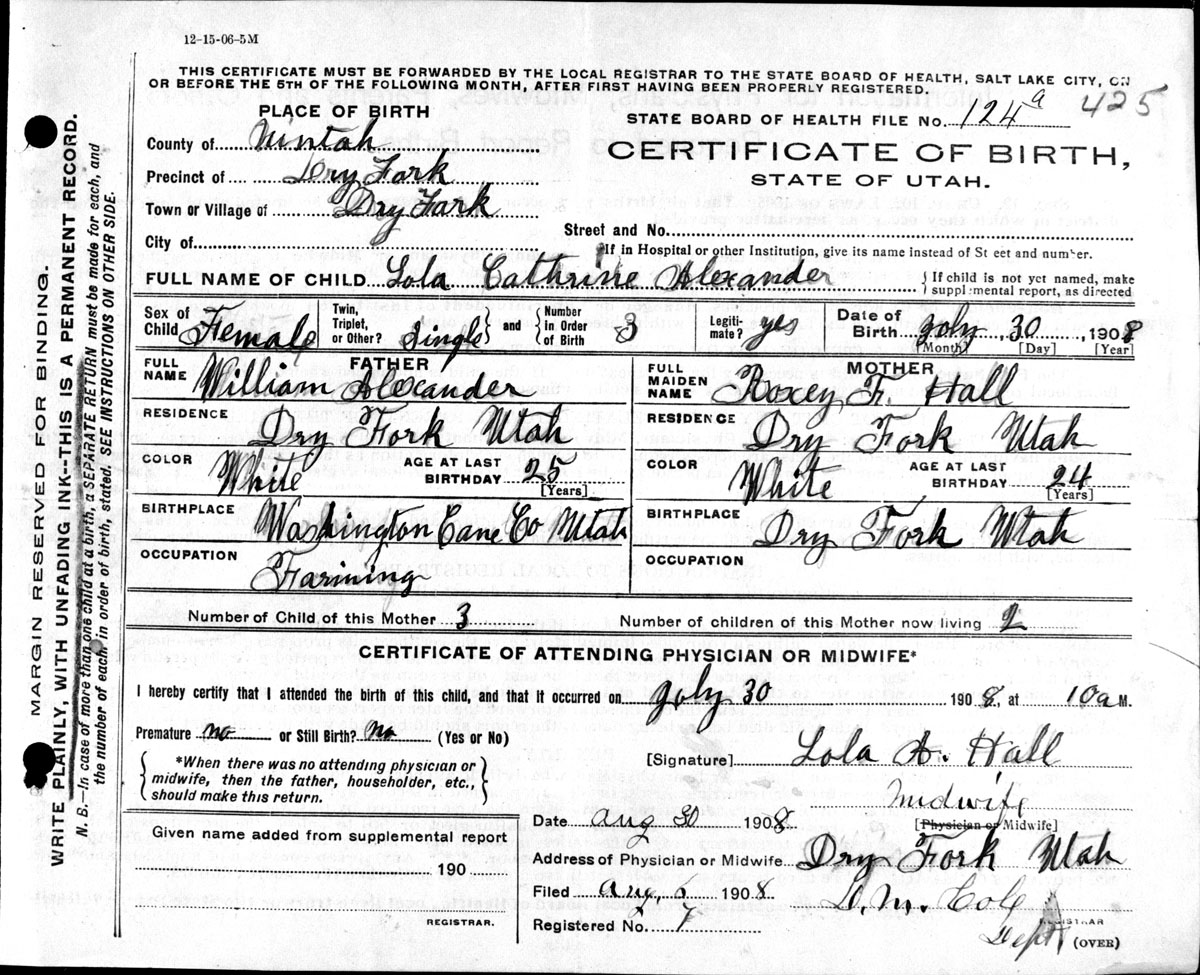 12-15-06-5M
THIS CERTIFICATE MUST BE FORWARDED BY THE LOCAL REGISTRAR TO THE STATE BOARD OF HEALTH, SALT LAKE CITY, ON
OR BEFORE THE 5TH OF THE FOLLOWING MONTH, AFTER FIRST HAVING BEEN PROPERLY REGISTERED.
PLACE OF BIRTH
STATE BOARD OF HEALTH FILE No. 124a 425
County of Uintah
CERTIFICATE OF BIRTH,
STATE OF UTAH.
Precinct of Dry Fork
Town or Village of Dry Fork
Street and No.
City of
If in Hospital or other Institution, give its name instead of St eet and number.
FULL NAME OF CHILD Lola Cathrine Alexander {If child is not yet named, make supplemental report, as directed
Sex of Child Female Twin, Triplet, or Other? single and Number in Order of Birth 3 Legitimate? yes Date of Birth joly 30, 1908
(Month) [Day] [Year]
FATHER
FULL NAME William Alexander
RESIDENCE Dry Fork Utah
COLOR White AGE AT LAST BIRTHDAY 25
[Years]
BIRTHPLACE Washington Cane Co Utah
OCCUPATION Farining
MOTHER
FULL MAIDEN NAME Roxey F. Hall
RESIDENCE Dry Fork Utah
COLOR White AGE AT LAST BIRTHDAY 24
[Years]
BIRTHPLACE Dry Fork Utah
OCCUPATION
Number of Child of this Mother 3 Number of children of this Mother now living 2
CERTIFICATE OF ATTENDING PHYSICIAN OR MIDWIFE*
I hereby certify that I attended the birth of this child, and that it occurred on joly 30 1908, at 10 a M.
Premature no or Still Birth? no (Yes or No)
[Signature] Lola A. Hall
*When there was no attending physician or
midwife, then the father, householder, etc.,
should make this return.
midwife
[Physician or Midwife]
Given name added from supplemental report
190
REGISTRAR.
Date aug 30 1908
Address of Physician or Midwife Dry Fork Utah
Filed aug, 6 1908 D. M. Cole
REGISTRAR
Registered No. 7 Dept
(OVER)
MARGIN RESERVED FOR BINDING.
WRITE PLAINLY, WITH UNFADING INK--THIS IS A PERMANENT RECORD.
N. B.—In case of more than one child at a birth, a SEPARATE RETURN must be made for each, and
the number of each, in order of birth, stated. SEE INSTRUCTIONS ON OTHER SIDE.